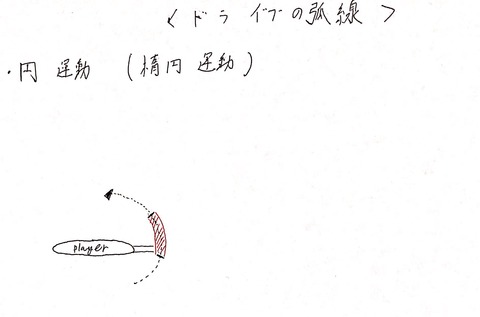 < ドライブの弧線 >
・円運動 (楕円運動)
player